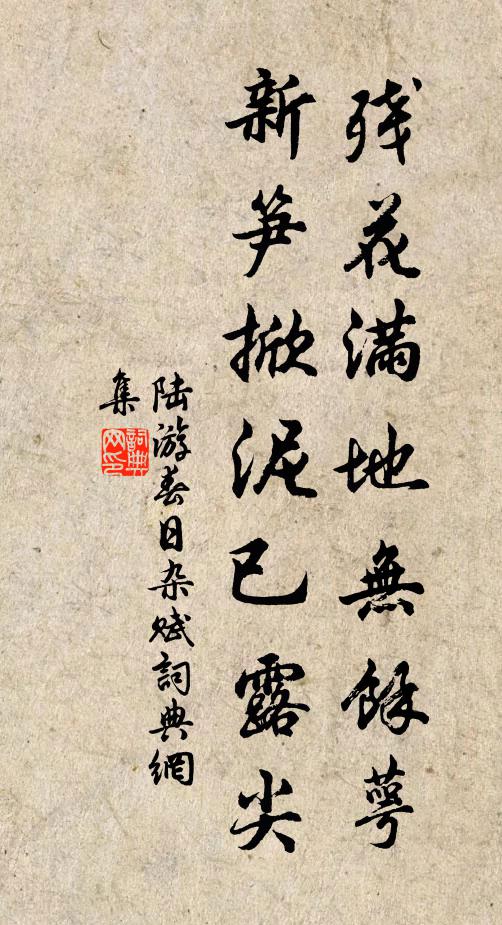 残花满地無餘萼
新笋掀泥已露尖
陆游春日杂赋詞典網
集
詞典网印